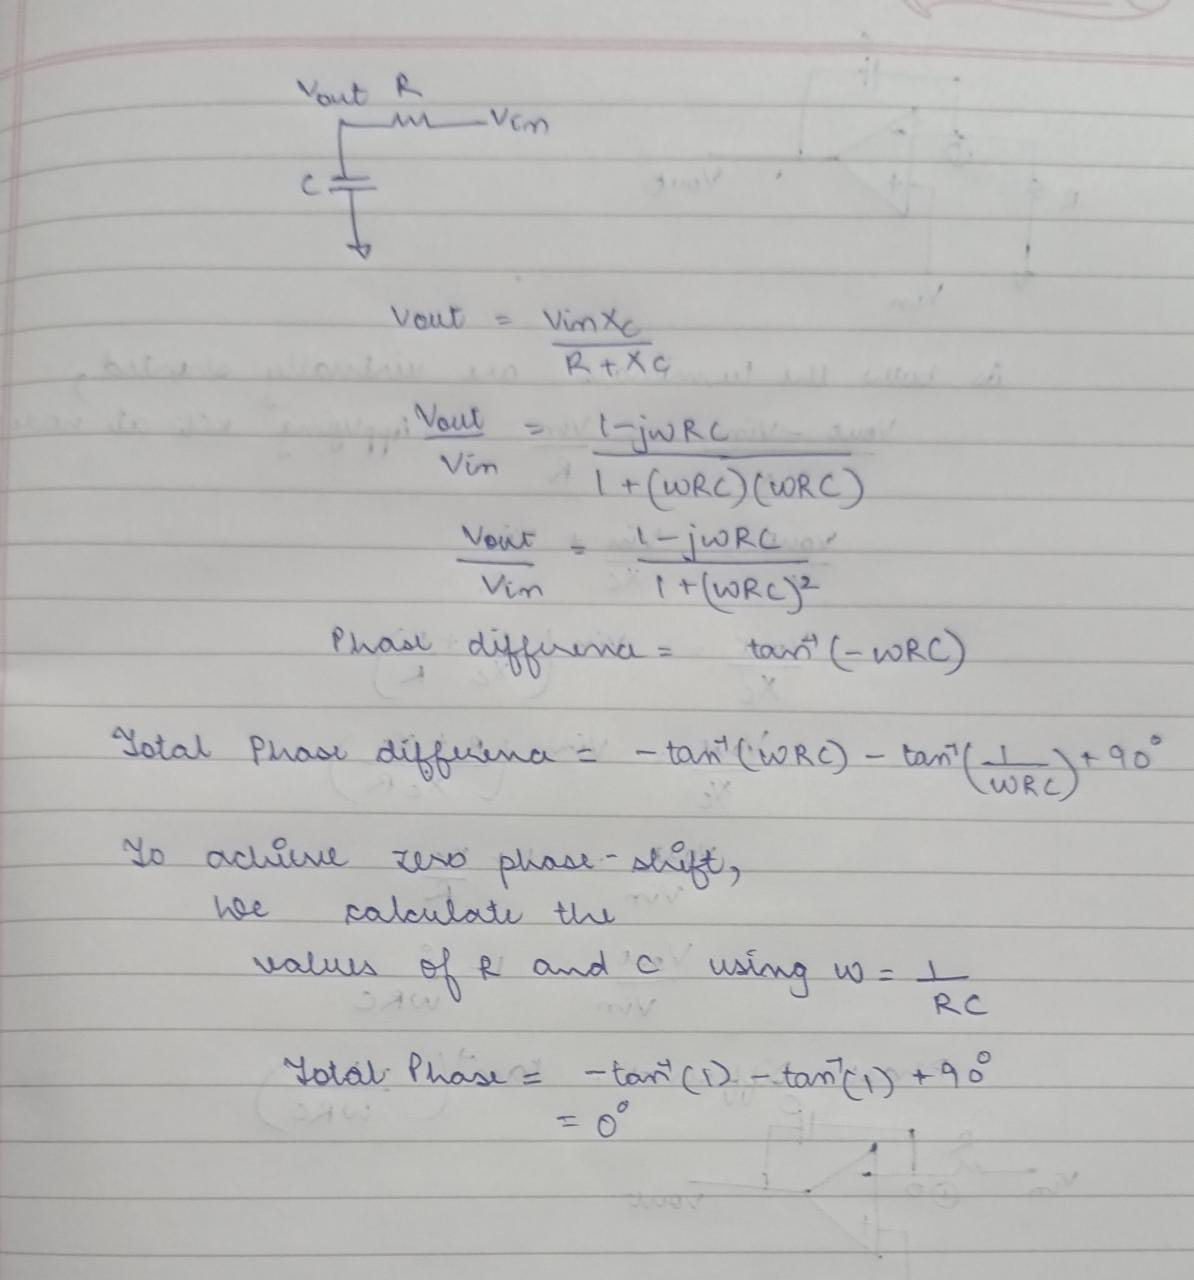 Vout R
Vin
C
Vout = Vin Xc / R + Xc
Vout / Vin = 1-jωRC / 1+(ωRC)(ωRC)
Vout / Vin = 1-jωRC / 1+(ωRC)²
Phase difference = tan⁻¹(-ωRC)
Total Phase difference = -tan⁻¹(ωRC) - tan⁻¹(1/ωRC) + 90°
To achieve zero phase-shift,
we calculate the
values of R and C using ω = 1/RC
Total Phase = -tan⁻¹(1) - tan⁻¹(1) + 90°
= 0°